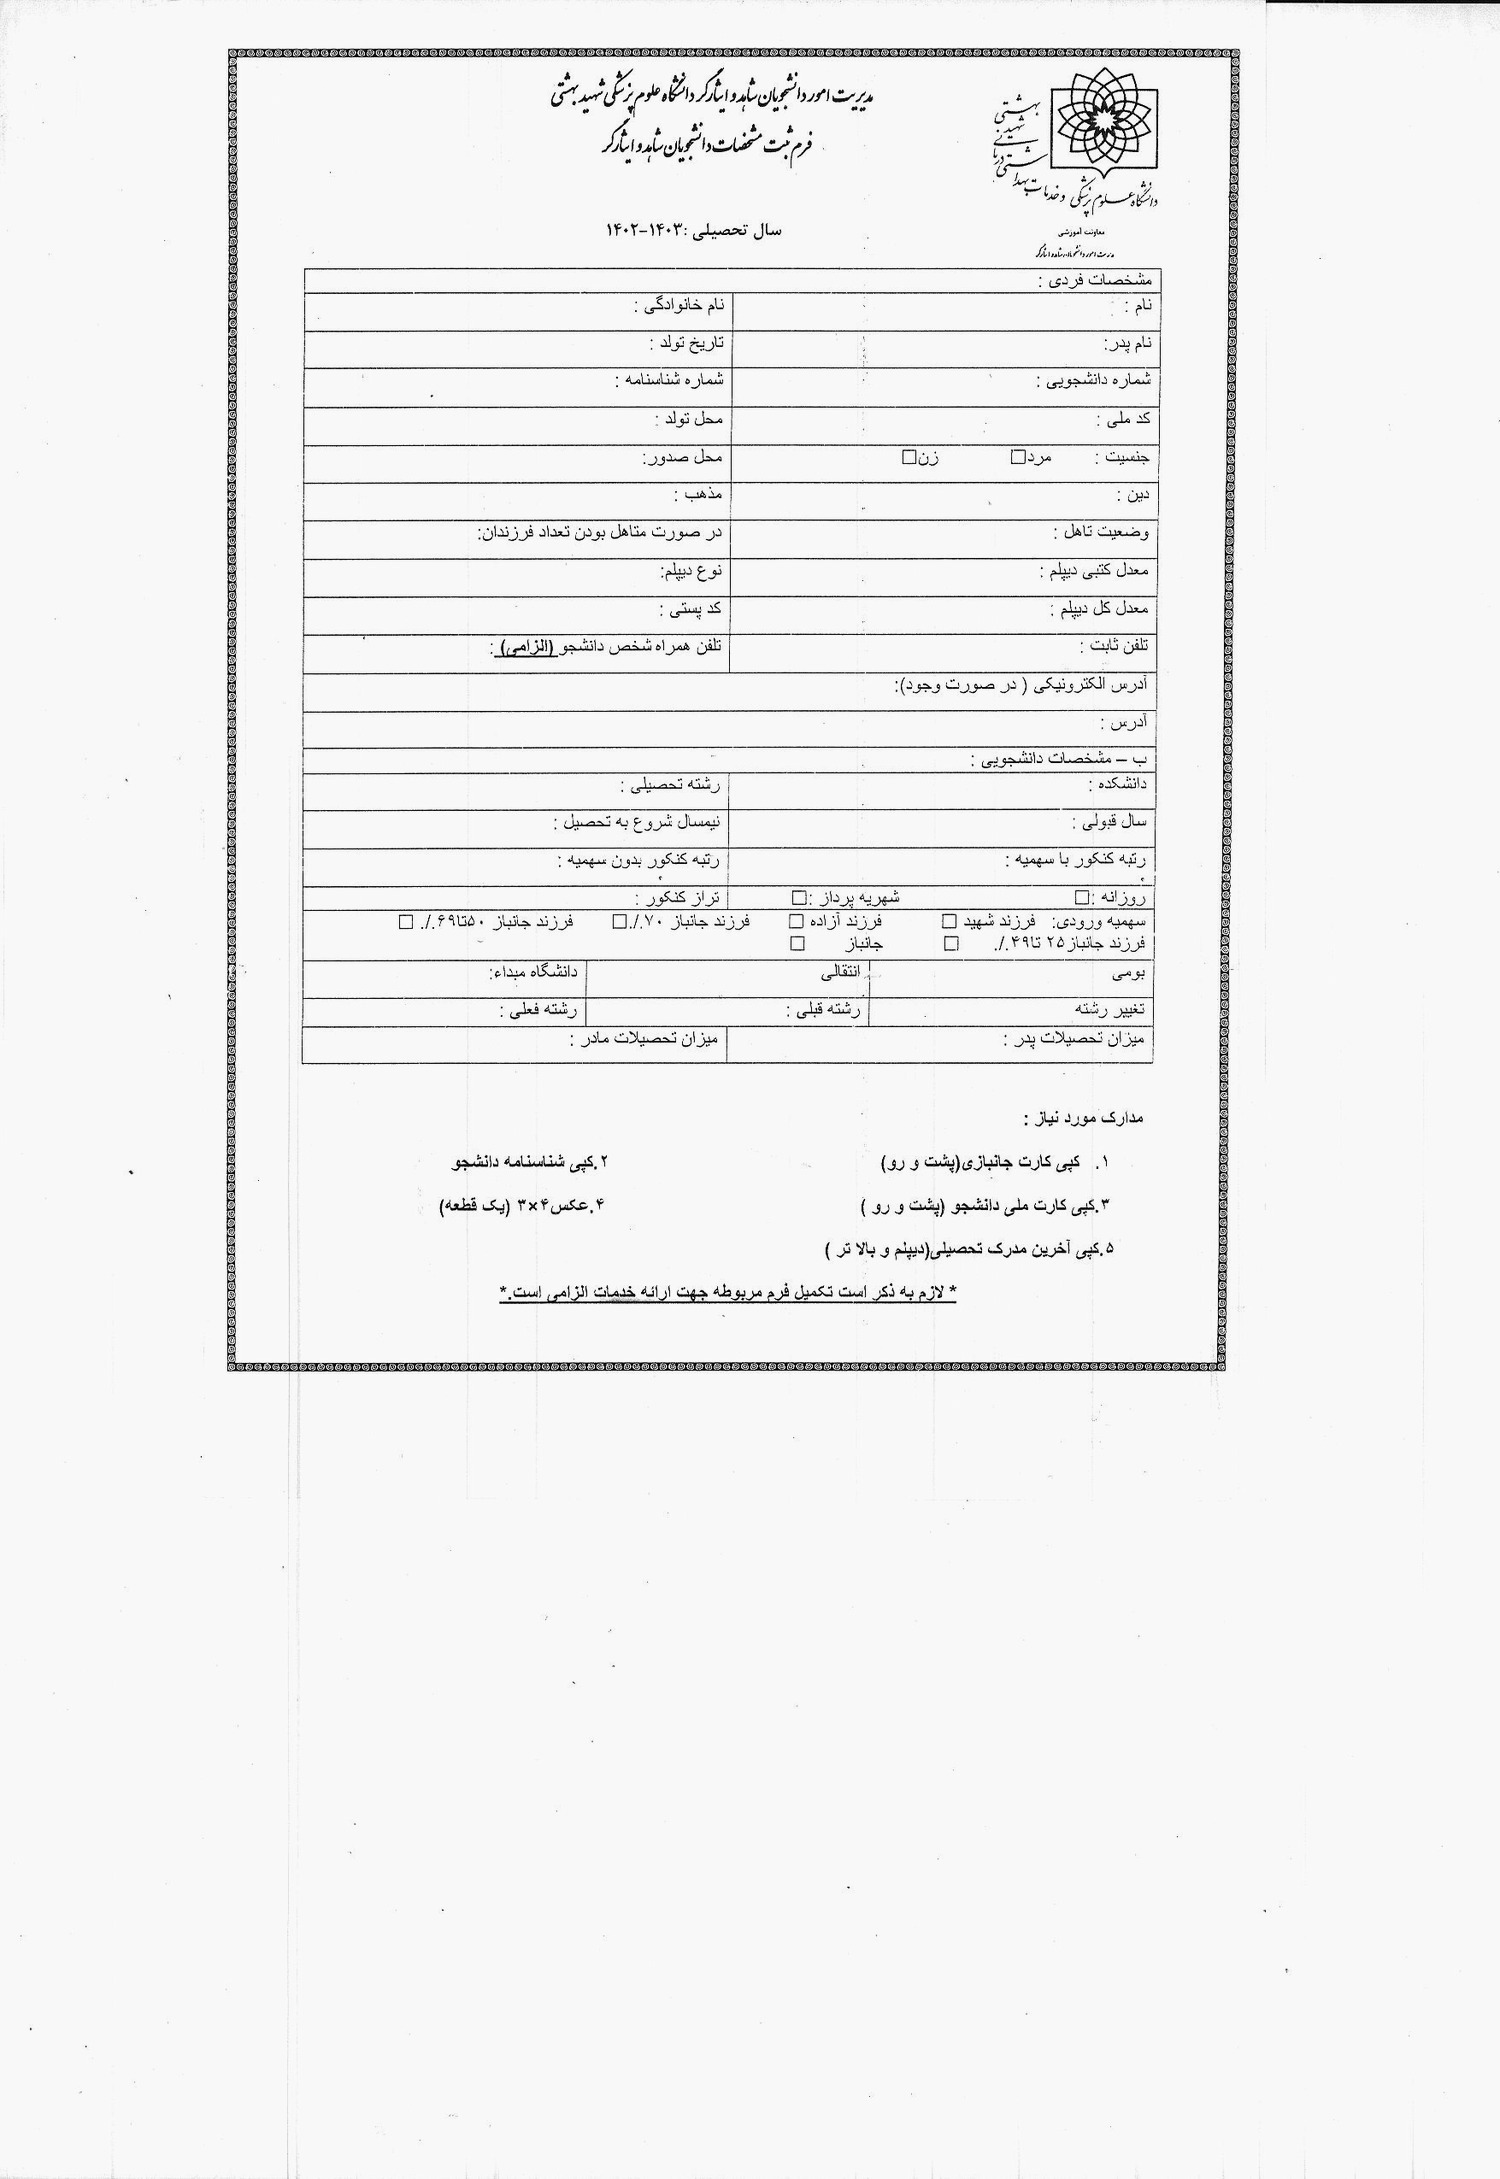 مدیریت امور دانشجویان شاهد و ایثارگر دانشگاه علوم پزشکی شهید بهشتی
فرم ثبت مشخصات دانشجویان شاهد و ایثارگر
دانشگاه علوم پزشکی و خدمات بهداشتی درمانی شهید بهشتی
معاونت آموزشی
مدیریت امور دانشجویان شاهد و ایثارگر
سال تحصیلی :۱۴۰۳-۱۴۰۲
مشخصات فردی :
نام : نام خانوادگی :
نام پدر: تاریخ تولد :
شماره دانشجویی : شماره شناسنامه :
کد ملی : محل تولد :
جنسیت : مرد□ زن□ محل صدور:
دین : مذهب :
وضعیت تاهل : در صورت متاهل بودن تعداد فرزندان:
معدل کتبی دیپلم : نوع دیپلم:
معدل کل دیپلم : کد پستی :
تلفن ثابت : تلفن همراه شخص دانشجو (الزامی) :
آدرس الکترونیکی ( در صورت وجود):
آدرس :
ب – مشخصات دانشجویی :
دانشکده : رشته تحصیلی :
سال قبولی : نیمسال شروع به تحصیل :
رتبه کنکور با سهمیه : رتبه کنکور بدون سهمیه :
روزانه :□ شهریه پرداز :□ تراز کنکور :
سهمیه ورودی: فرزند شهید □ فرزند آزاده □ فرزند جانباز ۷۰./.□ فرزند جانباز ۵۰تا۶۹./. □
فرزند جانباز۲۵ تا۴۹./. □ جانباز □
بومی انتقالی دانشگاه مبداء:
تغییر رشته رشته قبلی : رشته فعلی :
میزان تحصیلات پدر : میزان تحصیلات مادر :
مدارک مورد نیاز :
۱. کپی کارت جانبازی(پشت و رو) ۲.کپی شناسنامه دانشجو
۳.کپی کارت ملی دانشجو (پشت و رو ) ۴.عکس۴×۳ (یک قطعه)
۵.کپی آخرین مدرک تحصیلی(دیپلم و بالا تر )
* لازم به ذکر است تکمیل فرم مربوطه جهت ارائه خدمات الزامی است.*